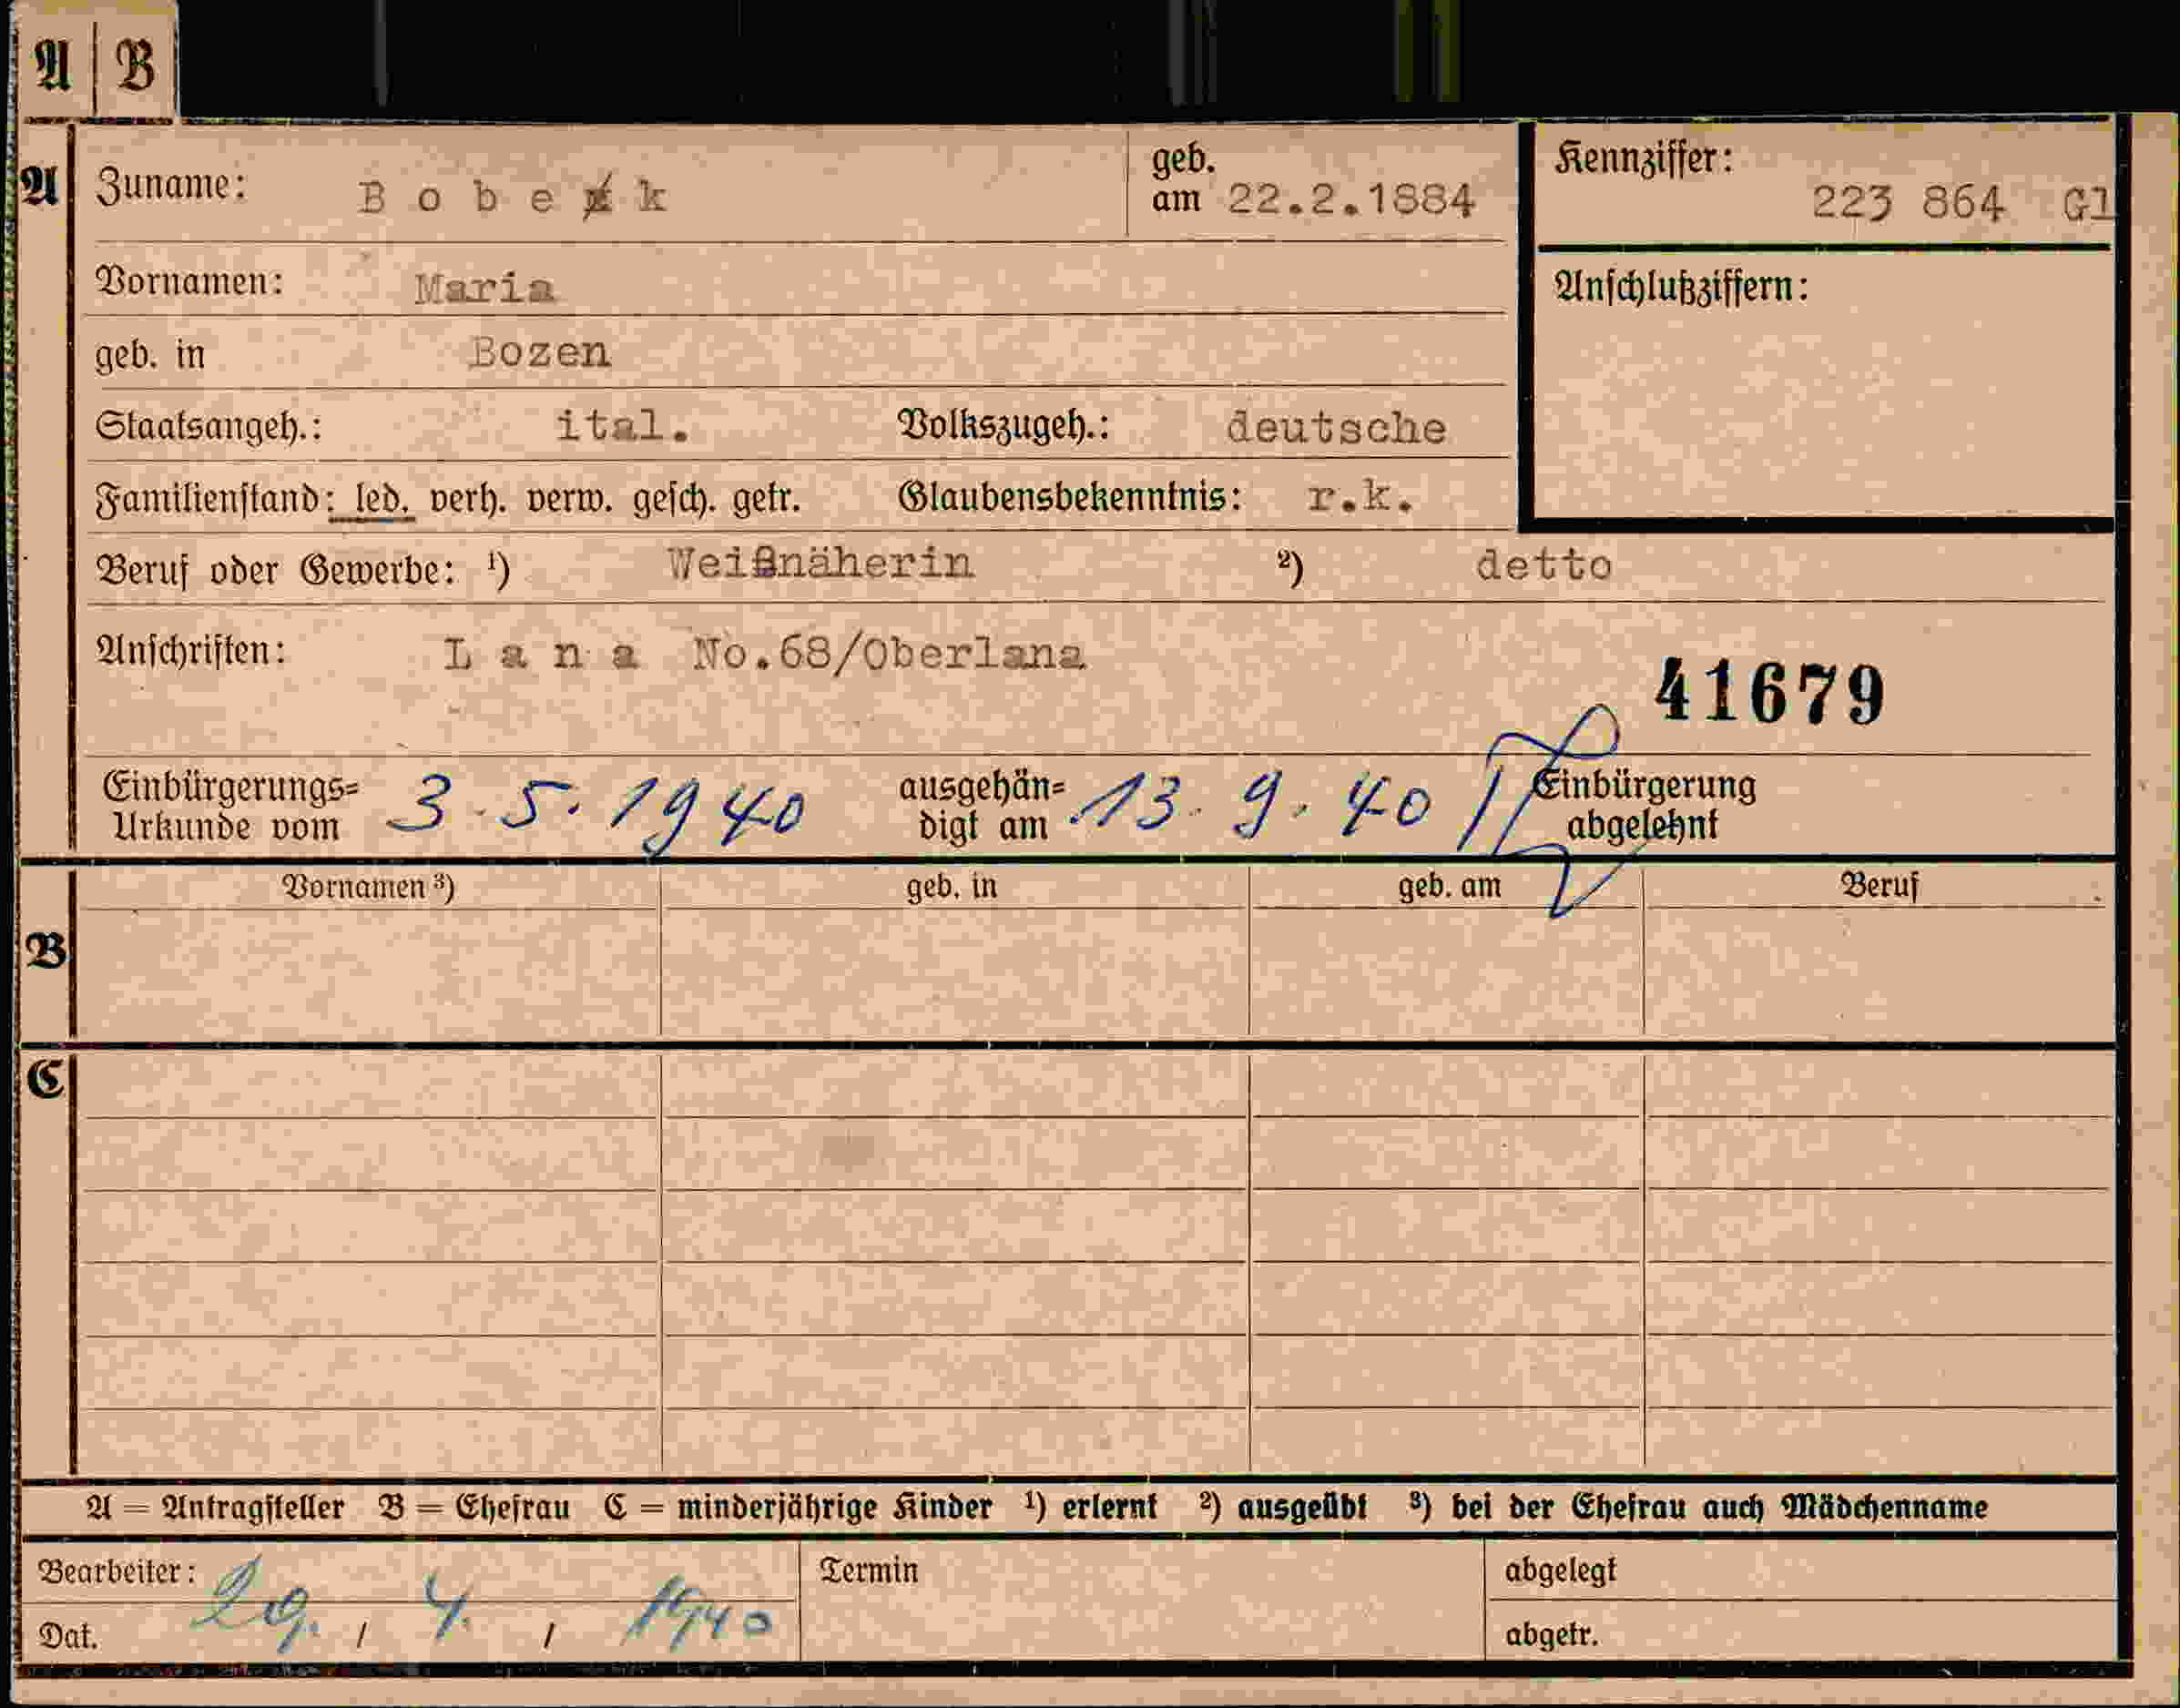 A B
A Zuname: Bobek geb. am 22.2.1884 Kennziffer: 223 864 Gl
Vornamen: Maria Anschlußziffern:
geb. in Bozen
Staatsangeh.: ital. Volkszugeh.: deutsche
Familienstand: led. verh. verw. gesch. getr. Glaubensbekenntnis: r.k.
Beruf oder Gewerbe: ¹) Weißnäherin ²) detto
Anschriften: Lana No.68/Oberlana
41679
Einbürgerungs= Urkunde vom 3.5.1940 ausgehän= digt am 13.9.40 Einbürgerung abgelehnt
Vornamen ³) geb. in geb. am Beruf
B
C
A = Antragsteller B = Ehefrau C = minderjährige Kinder ¹) erlernt ²) ausgeübt ³) bei der Ehefrau auch Mädchenname
Bearbeiter: Termin abgelegt
Dat. 29. / 4. / 1940 abgetr.